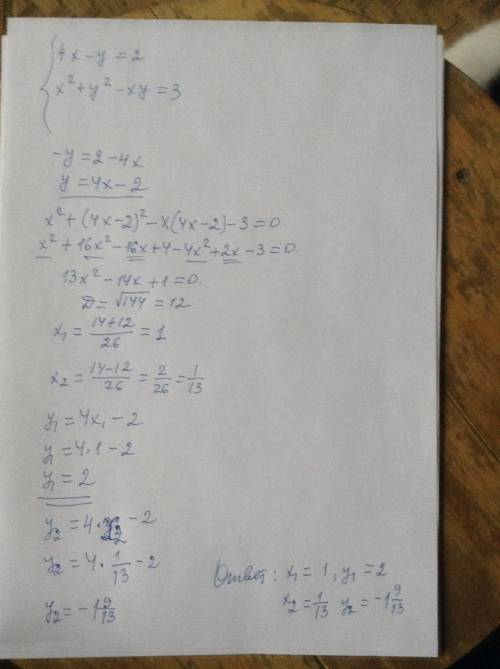 4x-y=2
x²+y²-xy=3
-y=2-4x
y=4x-2
x²+(4x-2)²-x(4x-2)-3=0.
x²+16x²-16x+4-4x²+2x-3=0.
13x²-14x+1=0.
D=√144=12
x₁=14+12/26=1
x₂=14-12/26=2/26=1/13
y₁=4x₁-2
y₁=4·1-2
y₁=2
y₂=4· -2
y₂=4·1/13-2
y₂=-1 9/13
Ответ: x₁=1, y₁=2
x₂=1/13 y₂=-1 9/13